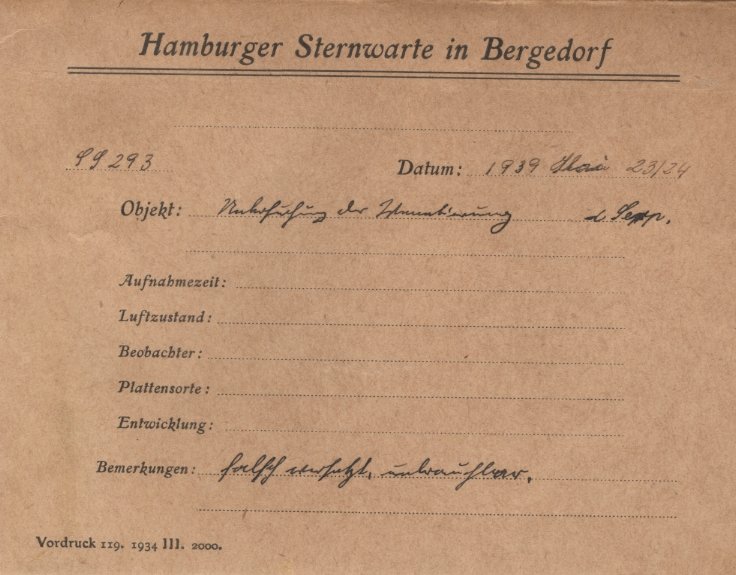 Hamburger Sternwarte in Bergedorf
SS 293 Datum: 1939 Mai 23/24
Objekt: Untersuchung der
Aufnahmezeit:
Luftzustand:
Beobachter:
Plattensorte:
Entwicklung:
Bemerkungen: falsch versetzt, unbrauchbar.
Vordruck 119. 1934 III. 2000.